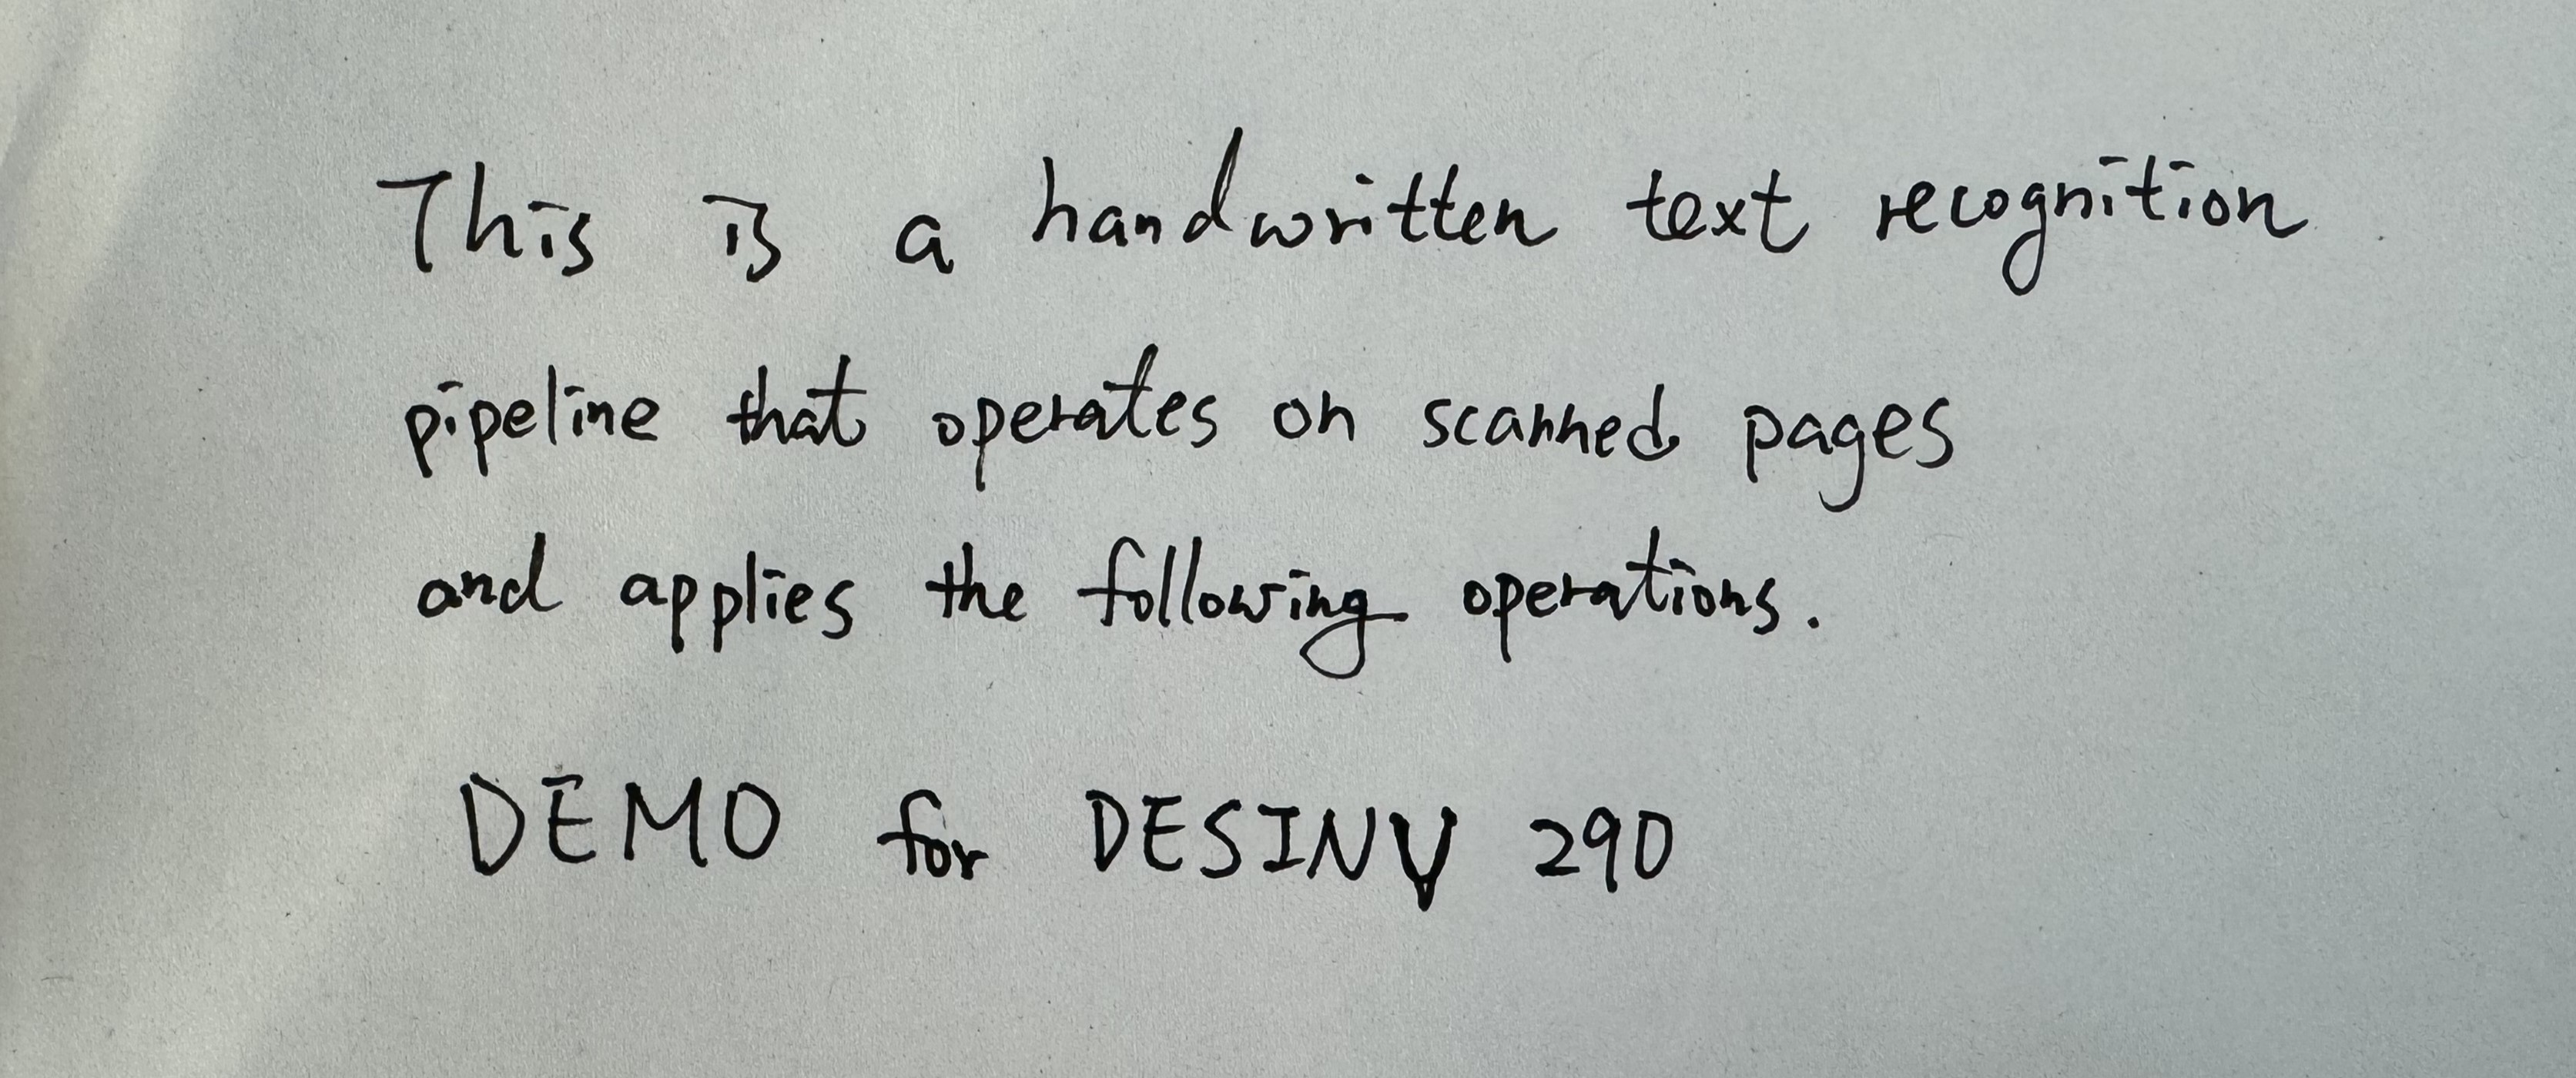 This is a handwritten text recognition
pipeline that operates on scanned pages
and applies the following operations.
DEMO for DESINV 290